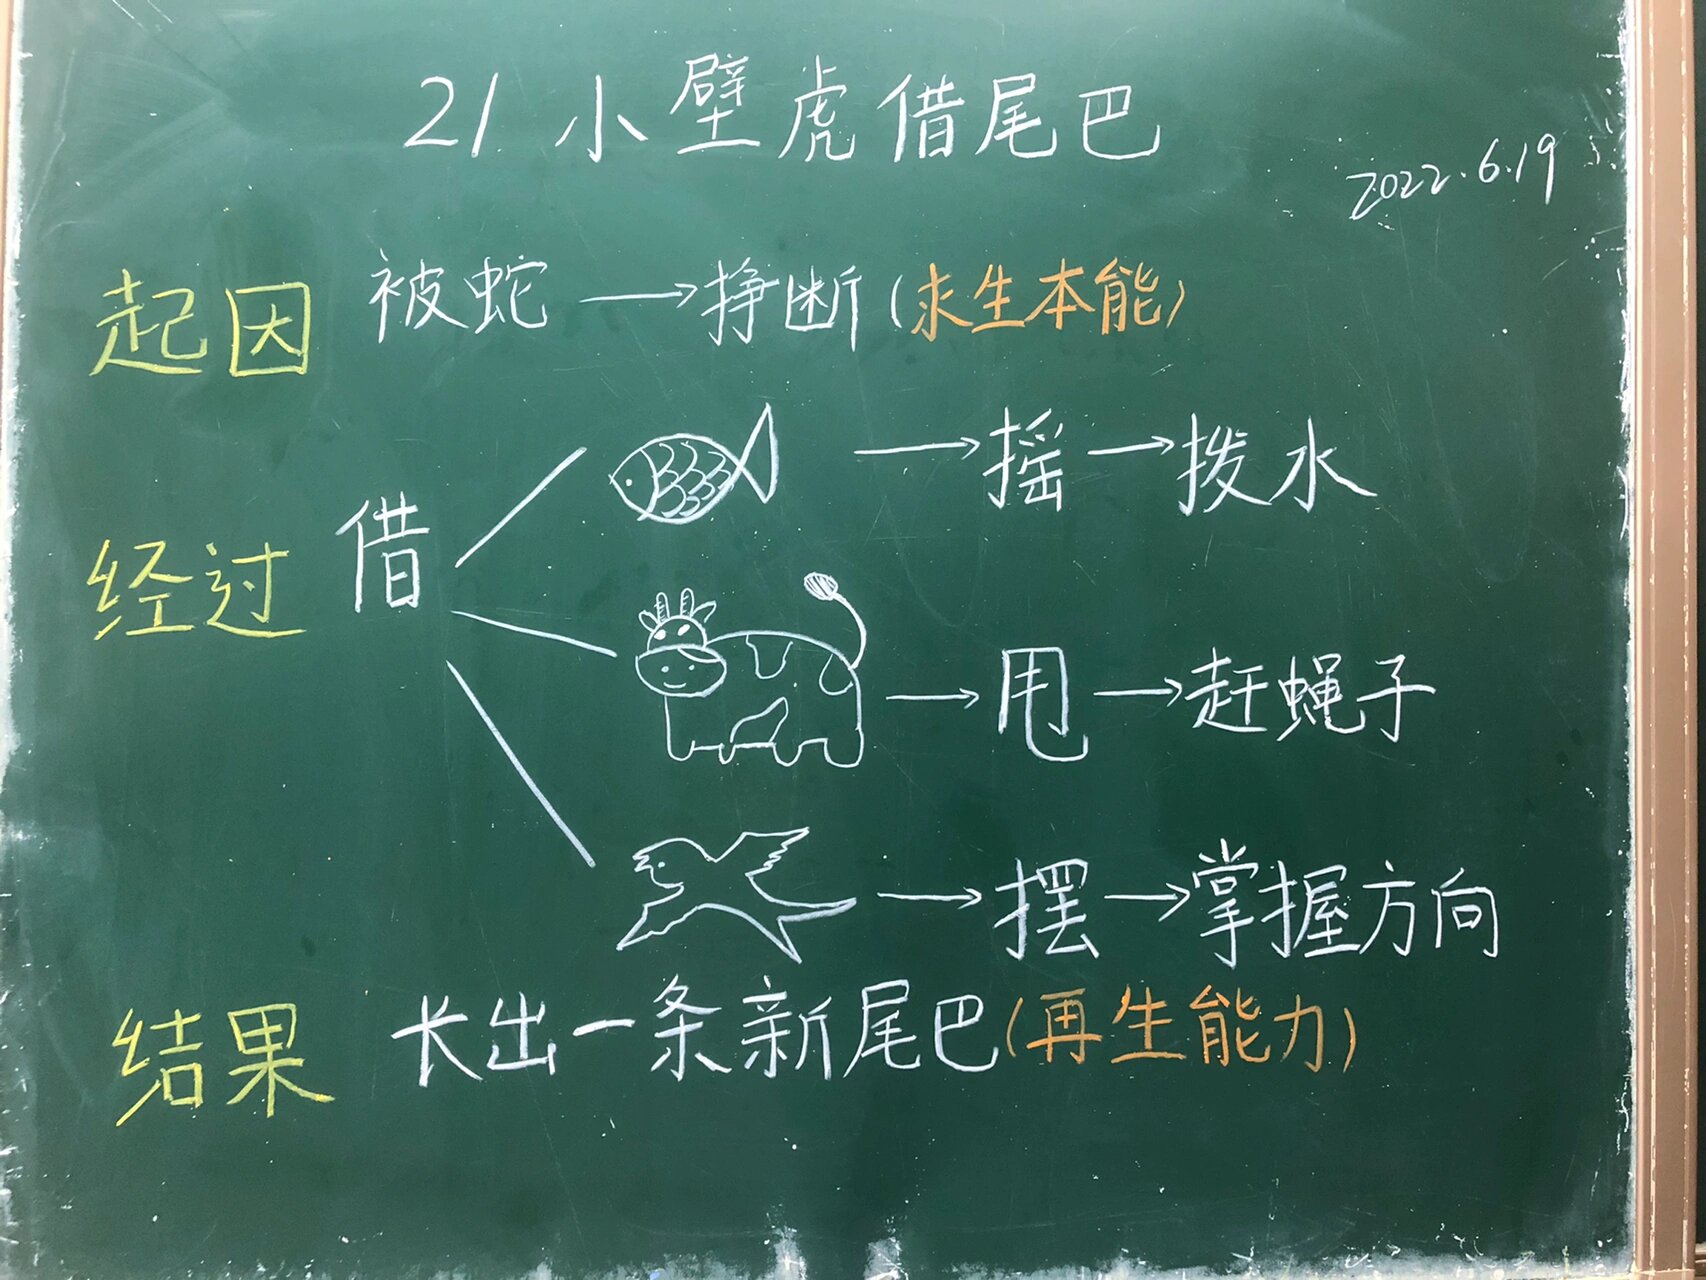 21 小壁虎借尾巴
2022.6.19
起因 被蛇→挣断(求生本能)
→摇→拨水
经过 借
→甩→赶蝇子
→摆→掌握方向
结果 长出一条新尾巴(再生能力)